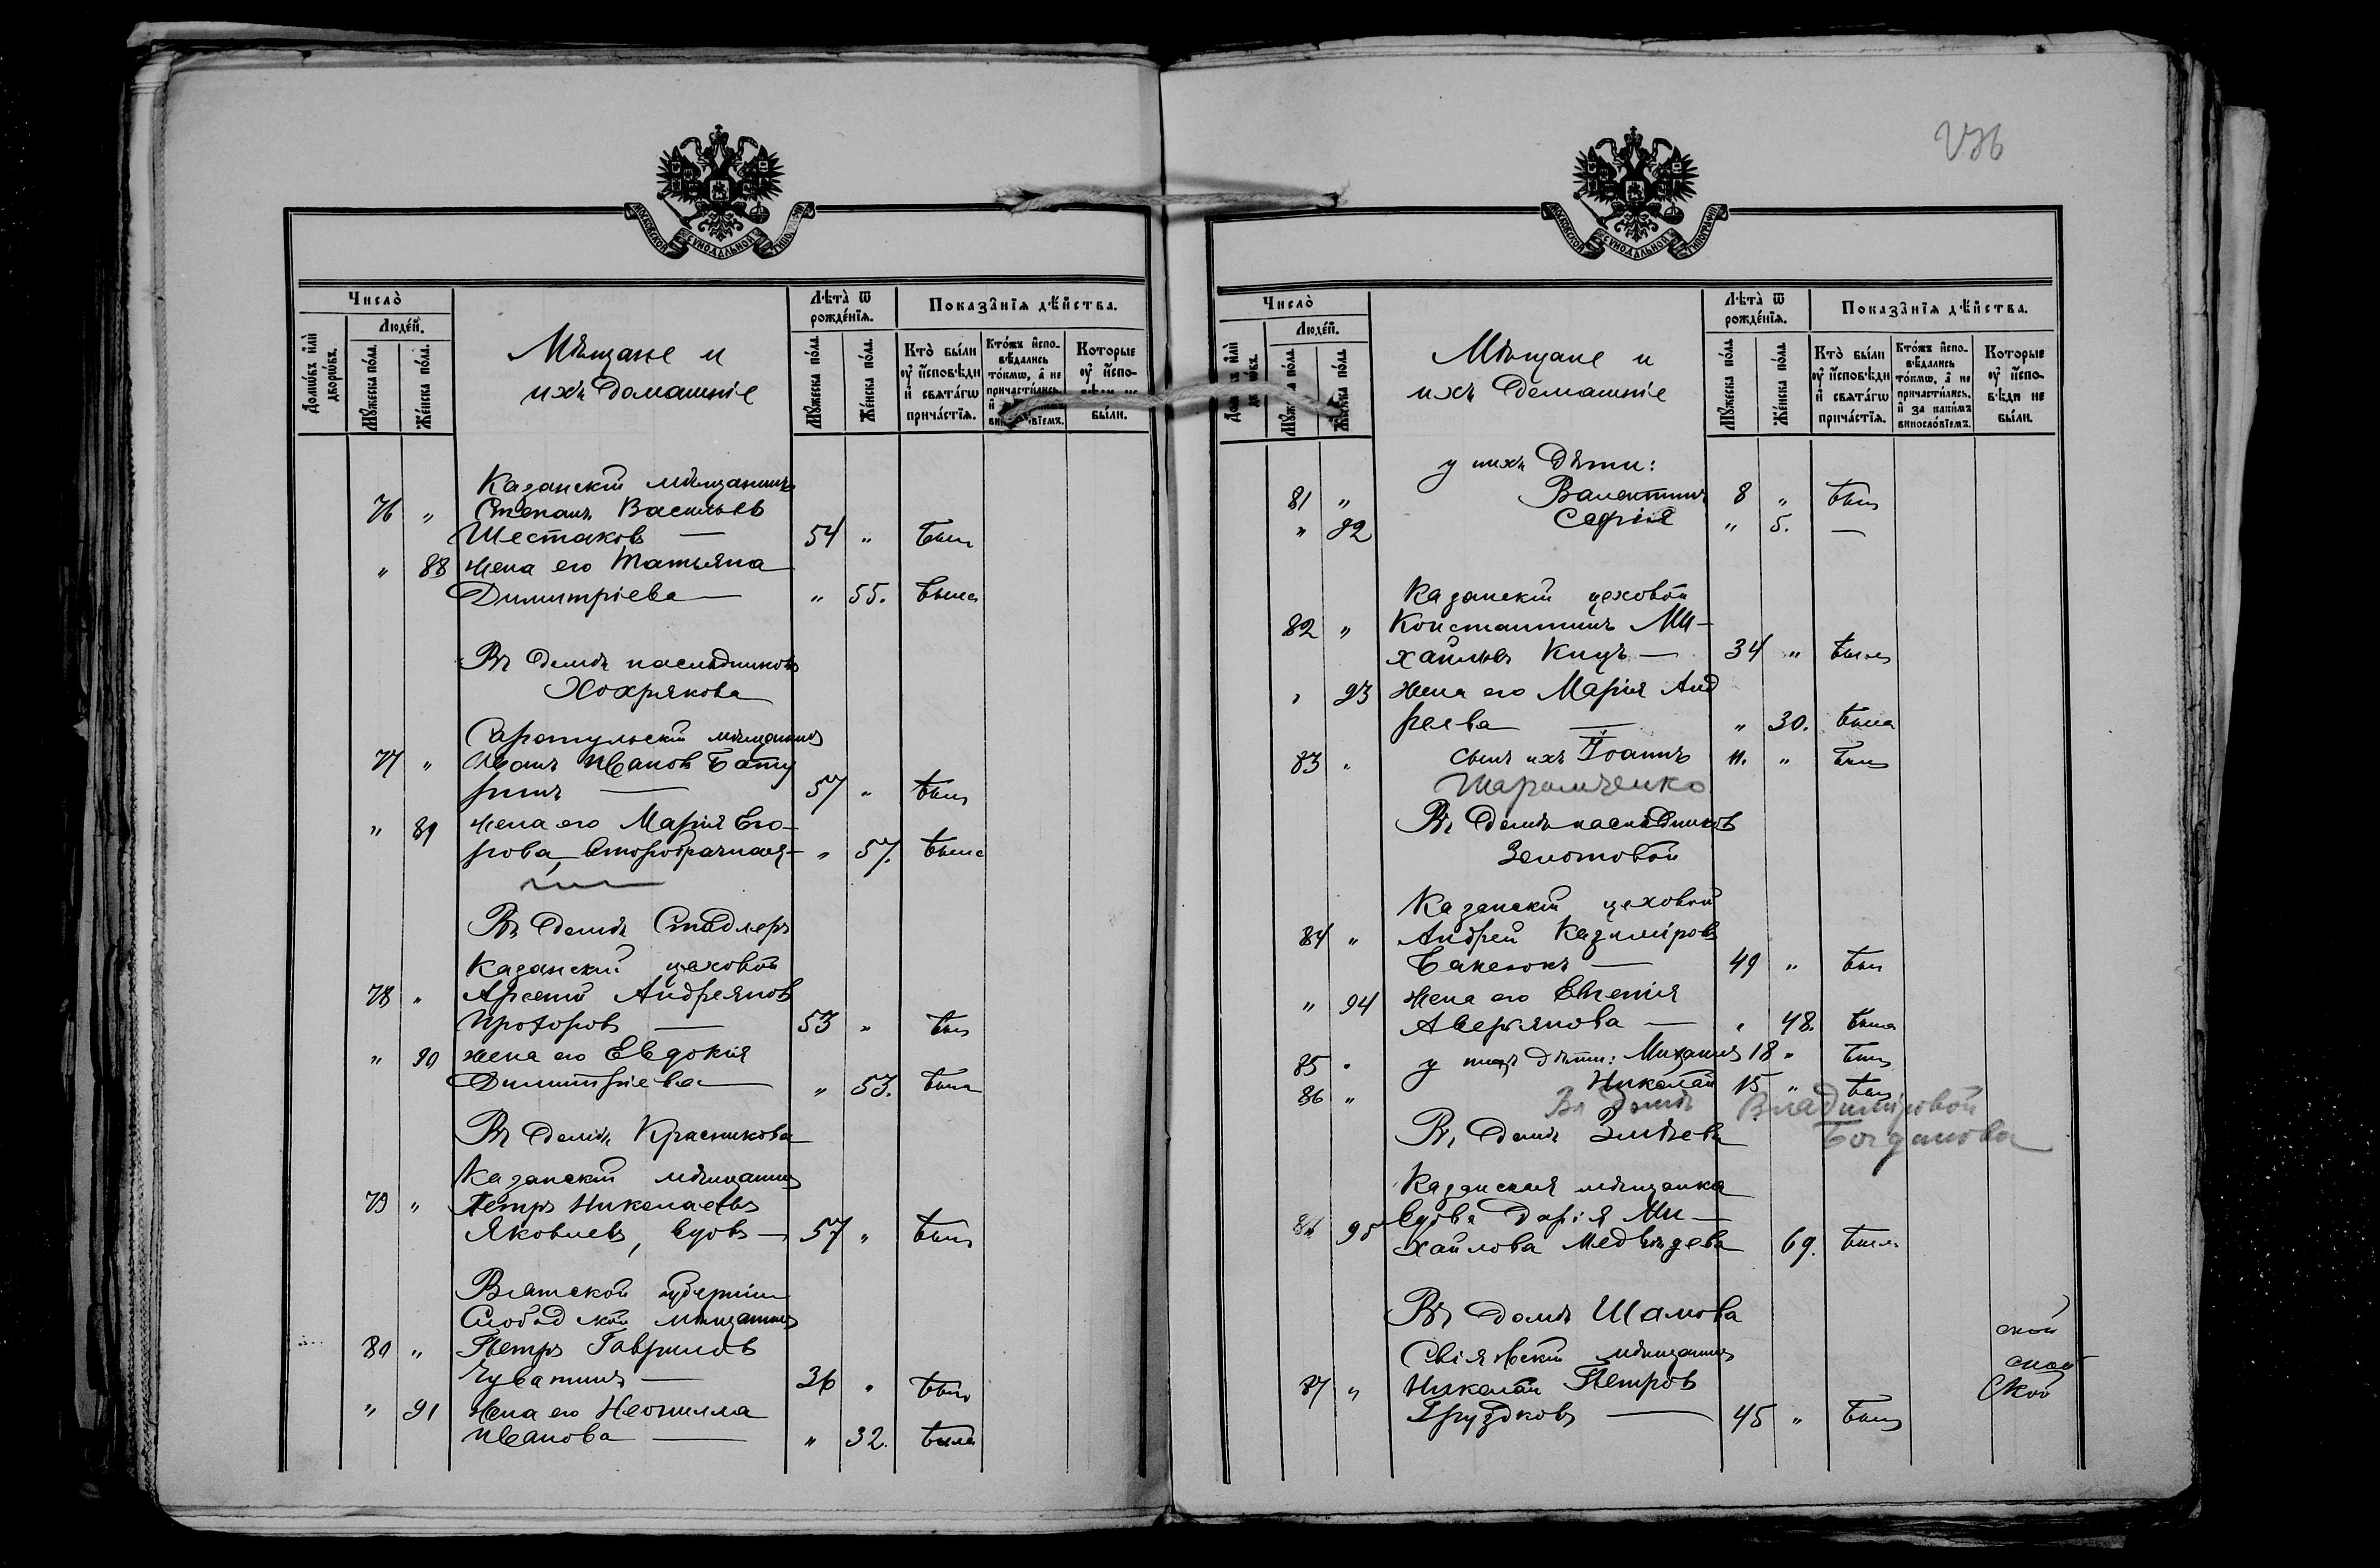 МОСКОВСКОЙ СѴНОДАЛЬНОЙ ТИПОГРАФІИ
Число̀
Люде́й.
Домѡ́въ и҆лѝ дворѡ́въ.
Мꙋ́жеска по́ла.
Же́нска по́ла.
Мѣщане и
ихъ домашніе
Лѣта̀ ѿ рожде́нїѧ.
Мꙋ́жеска по́ла.
Же́нска по́ла.
Показа̑нїѧ дѣ́йства.
Кто̀ бы́ли ᲂу҆ и҆сповѣди и҆ свѧта́гѡ прича́стїѧ.
Кто́жъ и҆спо- вѣ́дались то́кмѡ, а҆ не причасти́лись,
Которые ᲂу҆ и҆спо- бы́ли.
Казанскій мѣщанинъ
76 " Степанъ Васильевъ
Шестаковъ — 54 " былъ
" 88 жена его Татьяна
Димитріева — " 55. была
Въ домѣ наслѣдниковъ
Хохрякова
Сарапульскій мѣщанинъ
77 " Иванъ Ивановъ Бату
ринъ — 57 " былъ
" 89 жена его Марія Его-
рова, второбрачная — " 57. была
Въ домѣ Стадлеръ
Казанскій цеховой
78 " Арсеній Андреяновъ
Прохоровъ — 53 " былъ
" 90 жена его Евдокія
Димитріева — " 53. была
Въ домѣ Красникова
Казанскій мѣщанинъ
79 " Петръ Николаевъ
Яковлевъ, вдовъ — 57 " былъ
Вятской губерніи
Слободской мѣщанинъ
80 " Петръ Гавриловъ
Чуватинъ — 36 " былъ
" 91 жена его Неонилла
Иванова — " 32. была
МОСКОВСКОЙ СѴНОДАЛЬНОЙ ТИПОГРАФІИ
Число̀
Люде́й.
Мꙋ́жеска по́ла.
Же́нска по́ла.
Мѣщане и
ихъ домашніе
Лѣта̀ ѿ рожде́нїѧ.
Мꙋ́жеска по́ла.
Же́нска по́ла.
Показа̑нїѧ дѣ́йства.
Кто̀ бы́ли ᲂу҆ и҆сповѣди и҆ свѧта́гѡ прича́стїѧ.
Кто́жъ и҆спо- вѣ́дались то́кмѡ, а҆ не причасти́лись, и҆ за каки́мъ виносло́вїемъ.
Которые ᲂу҆ и҆спо- вѣди не бы́ли.
у нихъ дѣти:
81 " Валентинъ 8 " былъ
" 92 Софія " 5. —
Казанскій цеховой
82 " Константинъ Ми-
хайловъ Кицъ — 34 " былъ
" 93 жена его Марія Анд
реева — " 30. была
83 " сынъ ихъ Іоаннъ 11. " былъ
Въ домѣ наслѣдниковъ
Золотовой
Казанскій цеховой
84 " Андрей Казиміровъ
— 49 " былъ
" 94 жена его Евгенія
Аверьянова — " 48. была
85 " у нихъ дѣти: Михаилъ 18 " былъ
86 " Николай 15 " былъ
Въ домѣ Владиміровой
Богданова
Въ домѣ Змѣева
Казанская мѣщанка
95 вдова Дарія Ми-
хайлова Медвѣдева 69. была
Въ домѣ Шамова
ской
Свіяжскій мѣщанинъ
ской
87 " Николай Петровъ
ской
Груздковъ — 45 " былъ